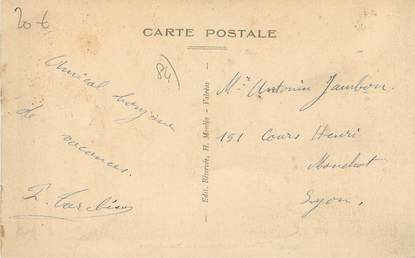 20 €
CARTE POSTALE
84
Amical bonjour
de
vacances.
Mr Antonin Jambon
151 Cours Henri
Lyon.
Edit. Réservée, H. - Valréas